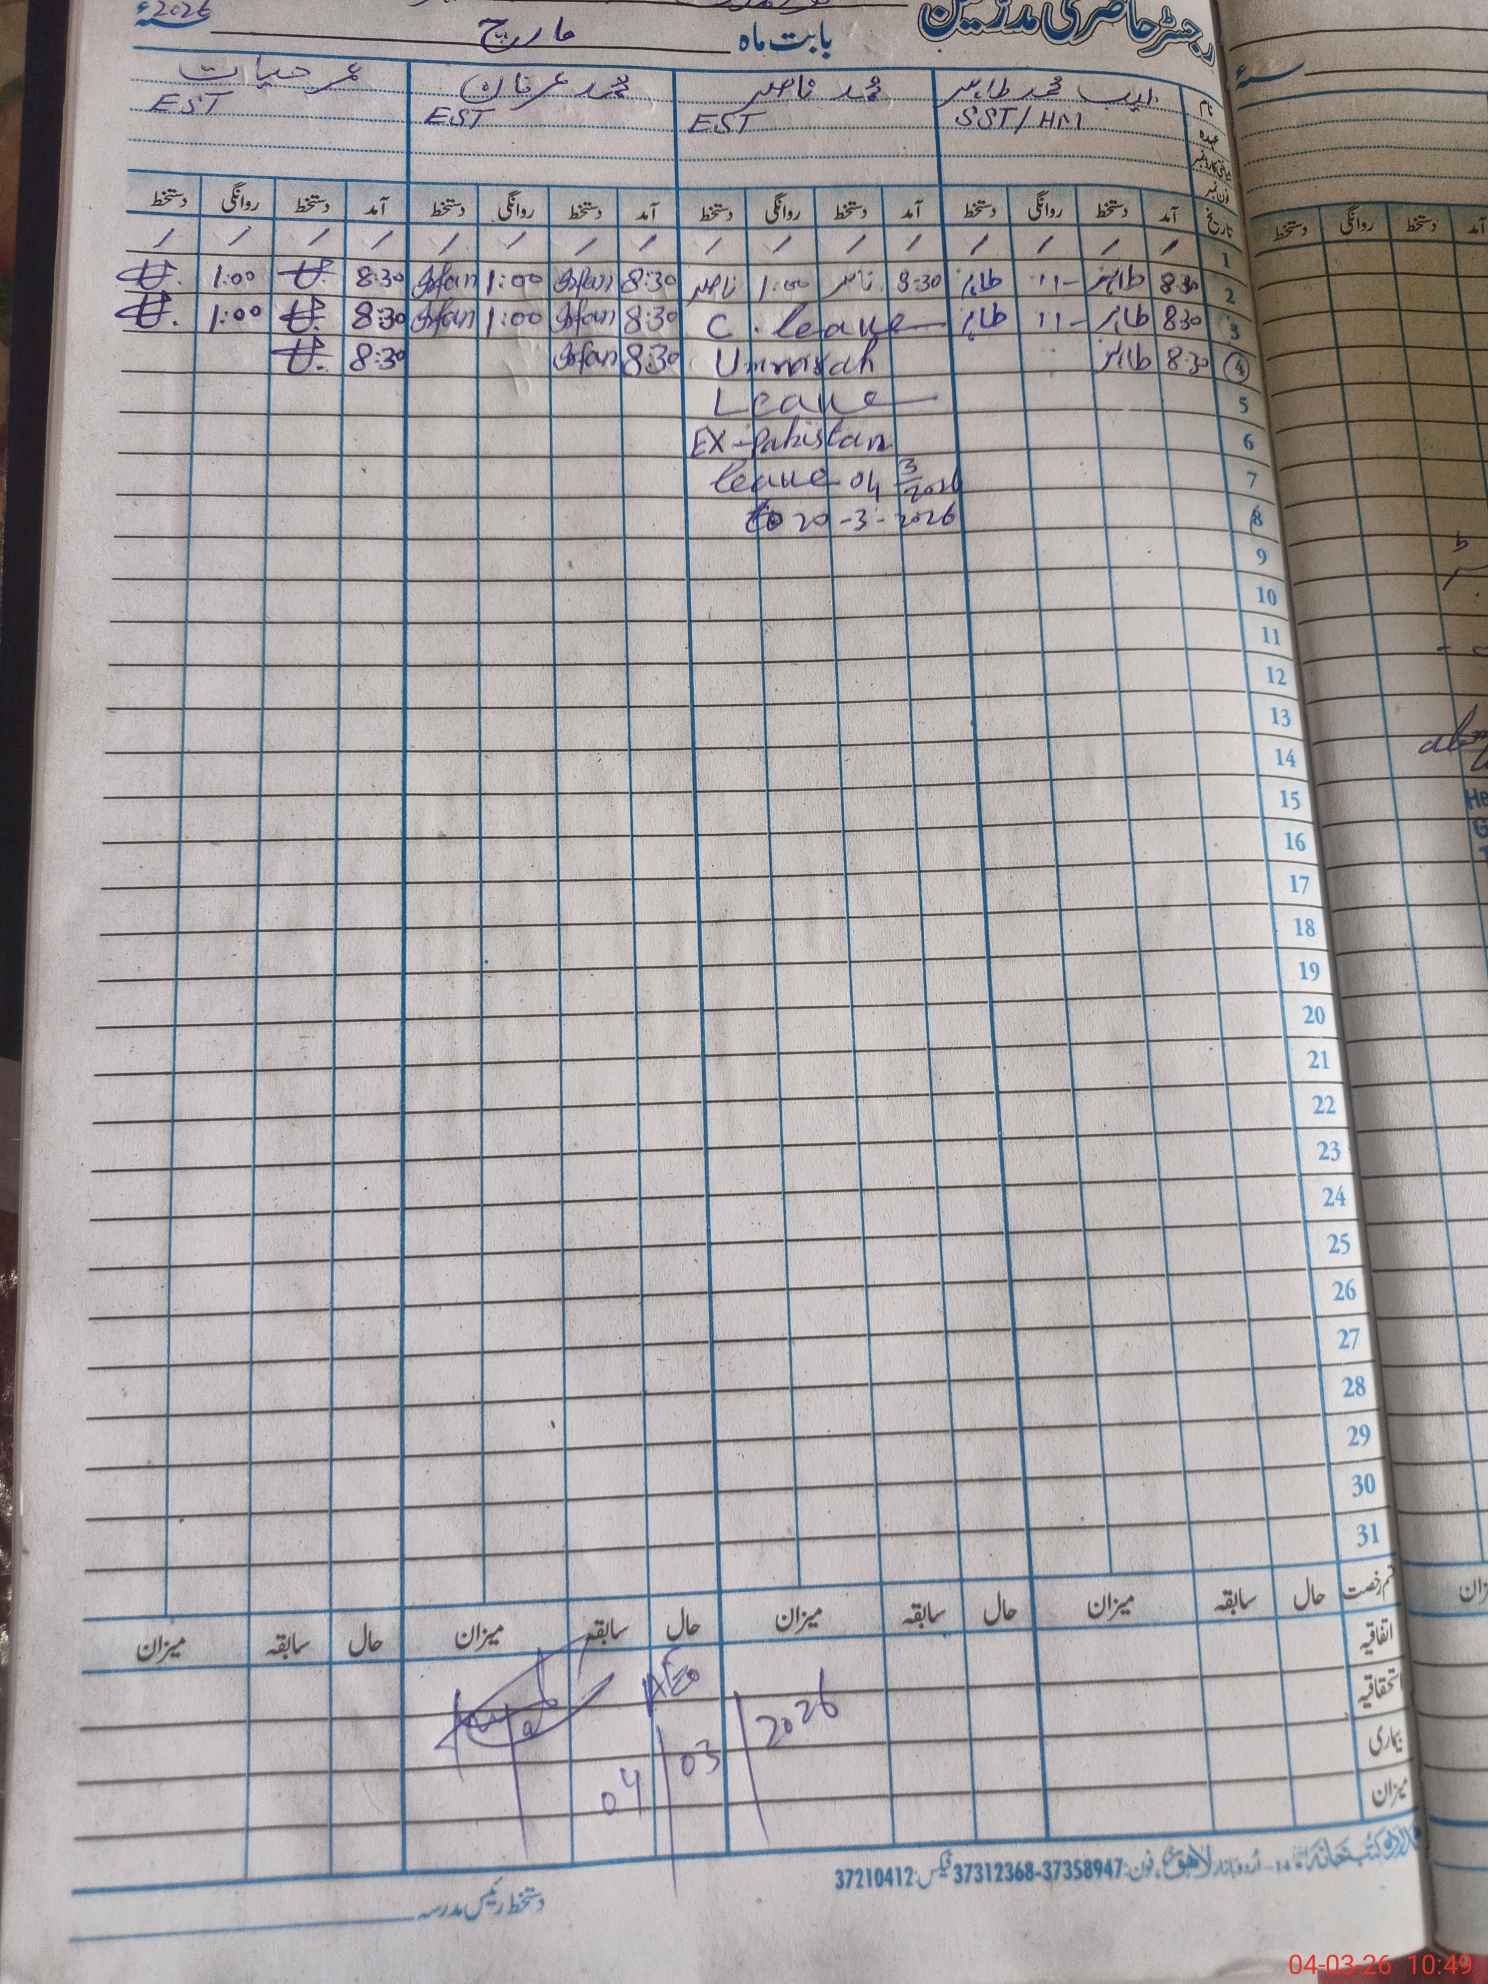 رجسٹر حاضری مدرسین
بابت ماہ مارچ 2026ء
نام محمد طاہر محمد ناصر محمد عرفان عمر حیات
عہدہ SST/HM EST EST EST
تاریخ آمد دستخط روانگی دستخط آمد دستخط روانگی دستخط آمد دستخط روانگی دستخط آمد دستخط روانگی دستخط
1 / / / / / / / / / / / / / / / /
2 8:30 طاہر -11- طاہر 8:30 ناصر 1:00 ناصر 8:30 Irfan 1:00 Irfan 8:30 1:00
3 8:30 طاہر -11- طاہر C. leave 8:30 Irfan 1:00 Irfan 8:30 1:00
4 8:30 طاہر Ummrah 8:30 Irfan 8:30
5 Leave
6 EX-Pakistan
7 leave 04 3/2026
8 to 20-3-2026
9
10
11
12
13
14
15
16
17
18
19
20
21
22
23
24
25
26
27
28
29
30
31
قسم رخصت حال سابقہ میزان حال سابقہ میزان حال سابقہ میزان حال سابقہ میزان
اتفاقیہ
استحقاقیہ AEO
بیماری 04/03/2026
میزان
اردو بازار لاہور، فون: 37358947-37312368 فیکس: 37210412
دستخط رئیس مدرسہ
آمد دستخط روانگی دستخط
میزان
04-03-26 10:49